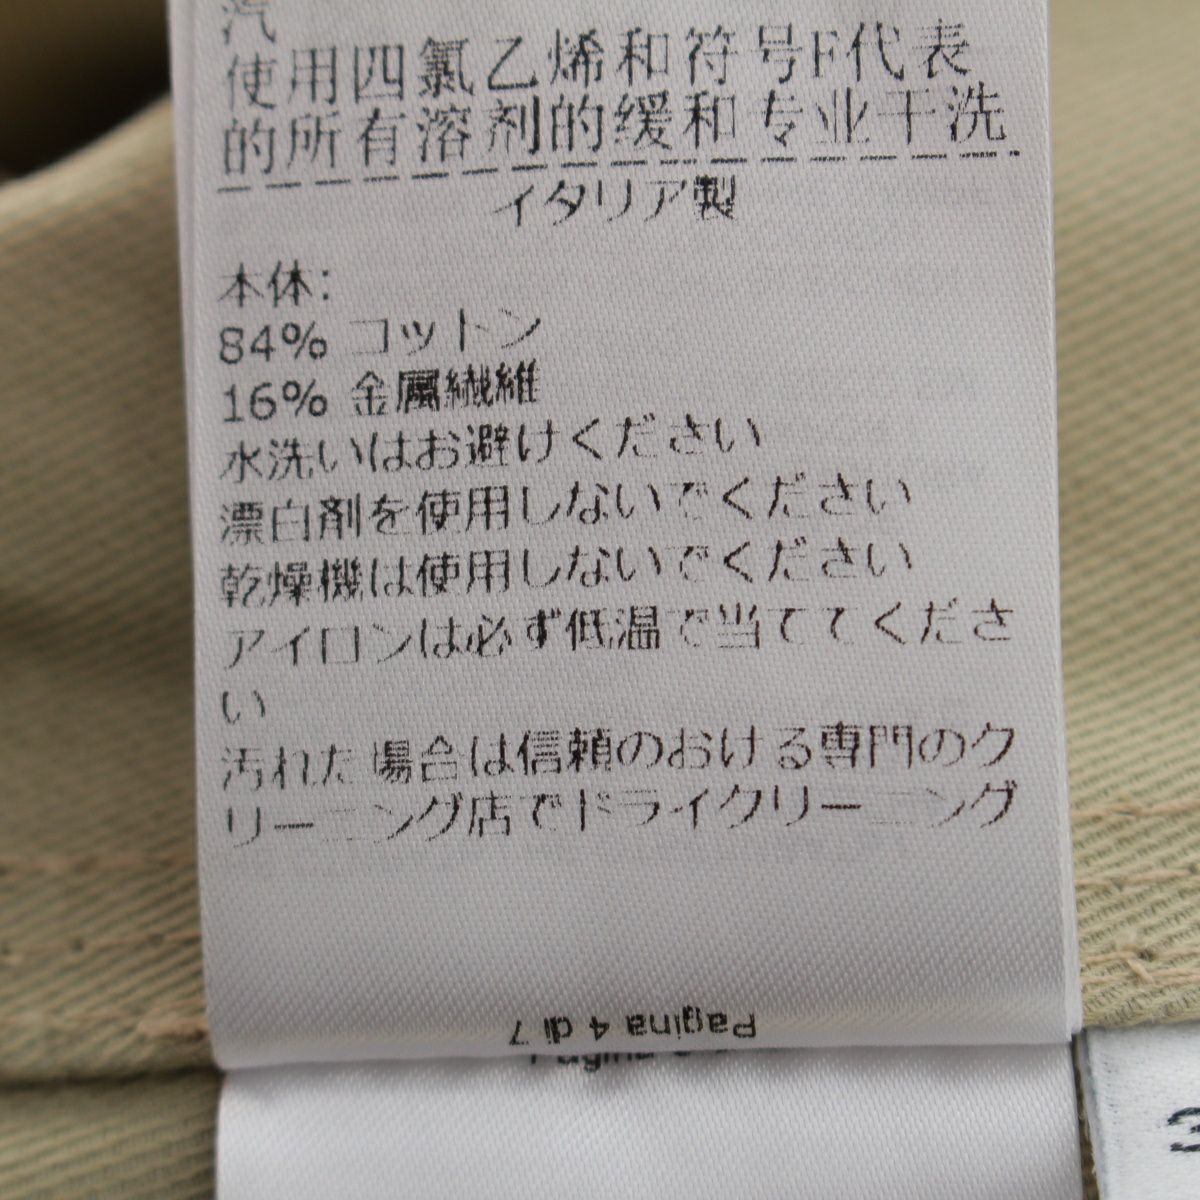 汽
使用四氯乙烯和符号F代表
的所有溶剂的缓和专业干洗
イタリア製
本体:
84% コットン
16% 金属繊維
水洗いはお避けください
漂白剤を使用しないでください
乾燥機は使用しないでください
アイロンは必ず低温で当ててくださ
い
汚れた場合は信頼のおける専門のク
リーニング店でドライクリーニング
Pagina 4 di 7
3